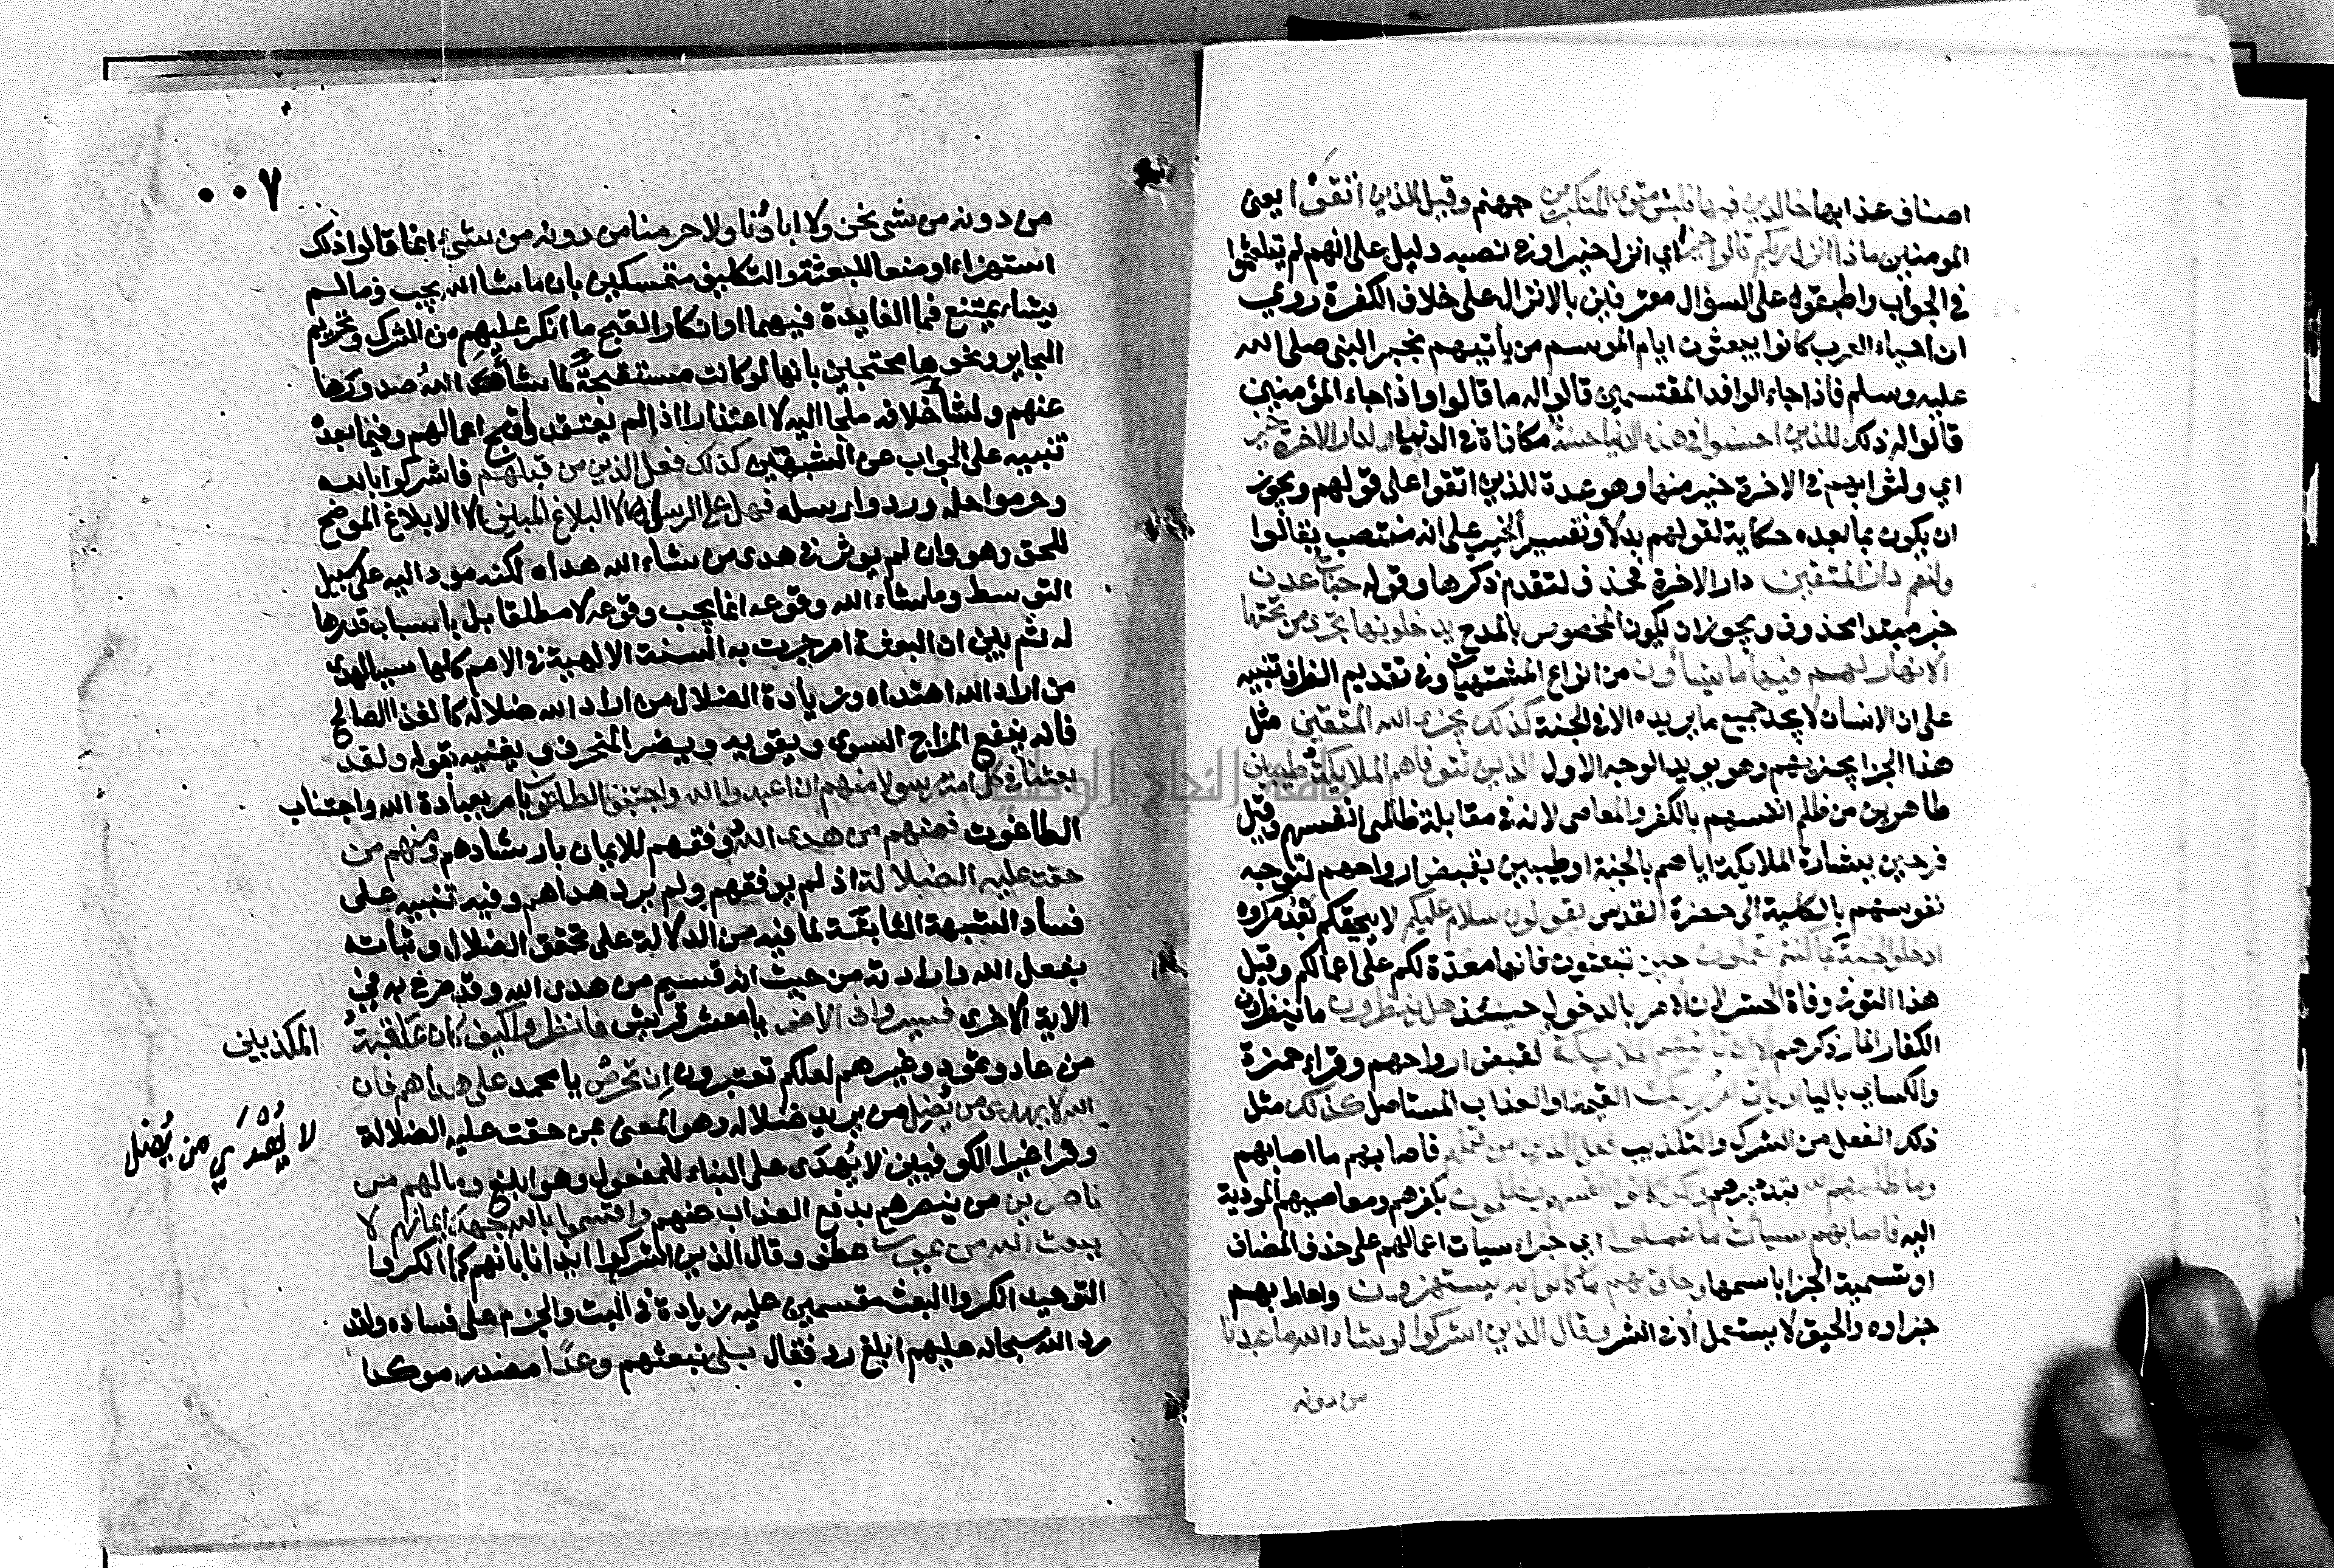 اصناف عذابها خالدين فيها فلبئس مثوى المتكبرين جهنم وقيل للذين اتقوا يعنى
المومنين ماذا انزل ربكم قالوا خيرا اي انزل خيرا وفي نصبه دليل على انهم لم يتلعثموا
في الجواب واطبقوه على السؤال معترفين بالانزال على خلاف الكفرة روي
ان احياء العرب كانوا يبعثون ايام الموسم من يأتيهم بخبر النبي صلى الله
عليه وسلم فاذا جاء الوافد المقتسمين قالوا له ما قالوا واذا جاء المؤمنين
قالوا له ذلك للذين احسنوا في هذه الدنيا حسنة مكافاة في الدنيا ولدار الاخرة خير
اي ولثوابهم في الاخرة خير منها وهو عدة للذين اتقوا على قولهم ويجوز
ان يكون بما بعده حكاية لقولهم بدلا وتفسير الخير على انه منتصب بقالوا
ولنعم دار المتقين دار الاخرة فحذف لتقدم ذكرها وقوله جنات عدن
خبر مبتدا محذوف ويجوز ان يكون المخصوص بالمدح يدخلونها تجري من تحتها
الانهار لهم فيها ما يشاؤن من انواع المشتهيات وفي تقديم الظرف تنبيه
على ان الانسان لا يجد جميع ما يريده الا في الجنة كذلك يجزي الله المتقين مثل
هذا الجزا يجزيهم وهو يويد الوجه الاول الذين تتوفاهم الملايكة طيبين
طاهرين من ظلم انفسهم بالكفر والمعاصي لانه في مقابلة ظالمي انفسهم وقيل
فرحين ببشارة الملايكة اياهم بالجنة او طيبين بقبض ارواحهم لتوجه
نفوسهم بالكلية الى حضرة القدس يقولون سلام عليكم لا يحيقكم بعد مكروه
ادخلوا الجنة بما كنتم تعملون حين تبعثون فانها معدة لكم على اعمالكم وقيل
هذا التوفي وفاة الحشر لان الامر بالدخول حينئذ هل ينظرون ما ينتظرون
الكفار المار ذكرهم الا ان تاتيهم الملايكة لقبض ارواحهم وقراء حمزة
والكساي بالياء اوياتي امر ربك القيمة او العذاب المستاصل كذلك مثل
ذلك الفعل من الشرك والتكذيب فعل الذين من قبلهم فاصابهم ما اصابهم
وما ظلمهم الله بتدميرهم ولكن كانوا انفسهم يظلمون بكفرهم ومعاصيهم المودية
اليه فاصابهم سيأت ما عملوا اي جزاء سيأت اعمالهم على حذف المضاف
او تسمية الجزا باسمها وحاق بهم ما كانوا به يستهزون واحاط بهم
جزاوه والحيق لا يستعمل الا في الشر وقال الذين اشركوا لو شاء الله ما عبدنا
من دونه
٠٠٧
من دونه من شى نحن ولا اباؤنا ولا حرمنا من دونه من شئ انما قالوا ذلك
استهزاء او منعا للبعثة والتكليف متمسكين بان ما شا الله يجب وما لم
يشاء يمتنع فما الفايدة فيهما او انكارا لقبح ما انكر عليهم من الشرك وتحريم
البحاير ونحوها محتجين بانها لو كانت مستقبحة لما شاء الله صدورها
عنهم ولشأ خلافه ملجا اليه لا اعتذارا اذ لم يعتقدوا قبح اعمالهم وفيما بعده
تنبيه على الجواب عن الشبهتين كذلك فعل الذين من قبلهم فاشركوا بالله
وحرموا حله وردوا رسله فهل على الرسل الا البلاغ المبين الا الابلاغ الموضح
للحق وهو وان لم يوثر في هدى من شاء الله هداه لكنه مود اليه على سبيل
التوسط وما شاء الله وقوعه انما يجب وقوعه لا مطلقا بل باسباب قدرها
له ثم بين ان البعثة امر جرت به السنة الالهية في الامم كلها سببا لهدى
من اراد الله اهتداه وزيادة الضلال من اراد الله ضلاله كالغذا الصالح
فانه ينفع المزاج السوي ويقويه ويضر المنحرف ويفنيه بقوله ولقد
بعثنا في كل امة رسولا منهم ان اعبدوا الله واجتنبوا الطاغوت يامر بعبادة الله واجتناب
الطاغوت فمنهم من هدى الله وفقهم للايمان بارشادهم ومنهم من
حقت عليه الضلالة اذ لم يوفقهم ولم يرد هداهم وفيه تنبيه على
فساد الشبهة الثانية لما فيه من الدلالة على تحقق الضلال وثباته
بفعل الله وارادته من حيث انه قسيم من هدى الله وقد صرح به في
الاية الاخرى فسيروا في الارض يا معشر قريش فانظروا كيف كان عاقبة المكذبين
من عاد وثمود وغيرهم لعلكم تعتبرون ان تحرص يا محمد على هداهم فان
الله لا يهدي من يُضِل من يريد ضلاله وهو المعنى عن حقت عليه الضلالة
لا يُهْدَي من يُضل
وقرا غير الكوفيين لا يُهدَى على البناء للمفعول وهو ابلغ وما لهم من
ناصرين من ينصرهم بدفع العذاب عنهم واقسموا بالله جهد ايمانهم لا
يبعث الله من يموت عطف وقال الذين اشركوا ايذانا بانهم كما انكروا
التوحيد انكروا البعث مقسمين عليه زيادة في البت والجزم على فساده ولقد
رد الله سبحانه عليهم ابلغ رد فقال بلى نبعثهم وعدًا مصدر موكد
جامعة النجاح الوطنية